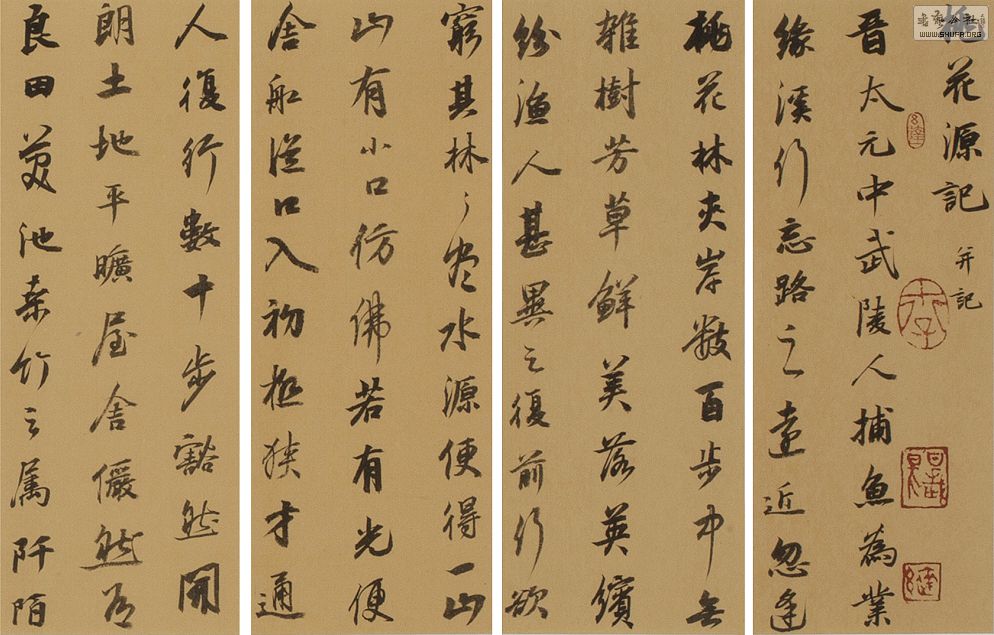 桃花源記 并記
晉太元中武陵人捕魚為業
緣溪行忘路之遠近忽逢
桃花林夾岸數百步中無
雜樹芳草鮮美落英繽
紛漁人甚異之復前行欲
窮其林々盡水源便得一山
山有小口仿佛若有光便
舍船從口入初極狹才通
人復行數十步豁然開
朗土地平曠屋舍儼然有
良田美池桑竹之屬阡陌
書藝公社
www.SHUFA.ORG